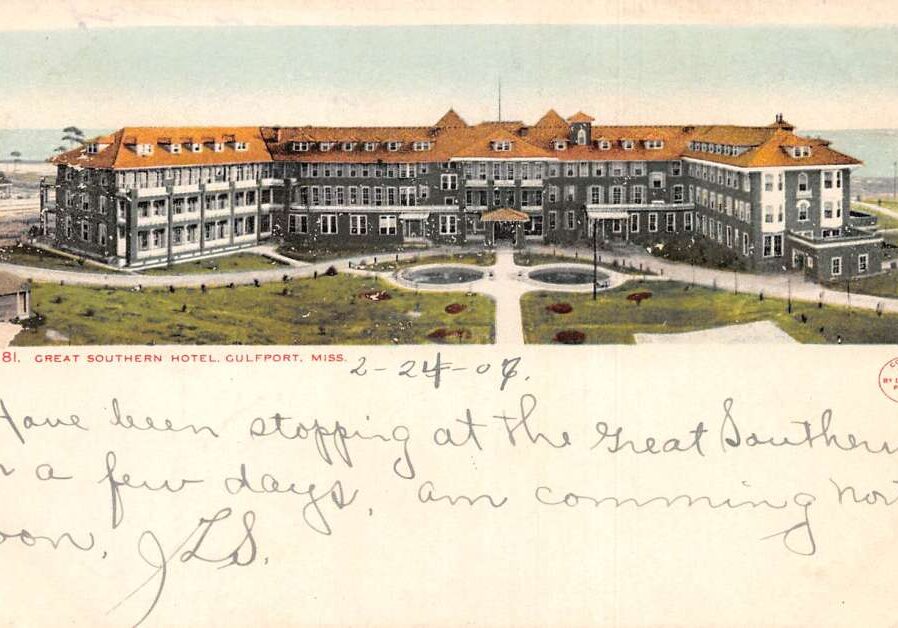 81. GREAT SOUTHERN HOTEL, GULFPORT, MISS.
2-24-07.
Have been stopping at the Great Southern
r a few days, am comming nort
oon, JLS.